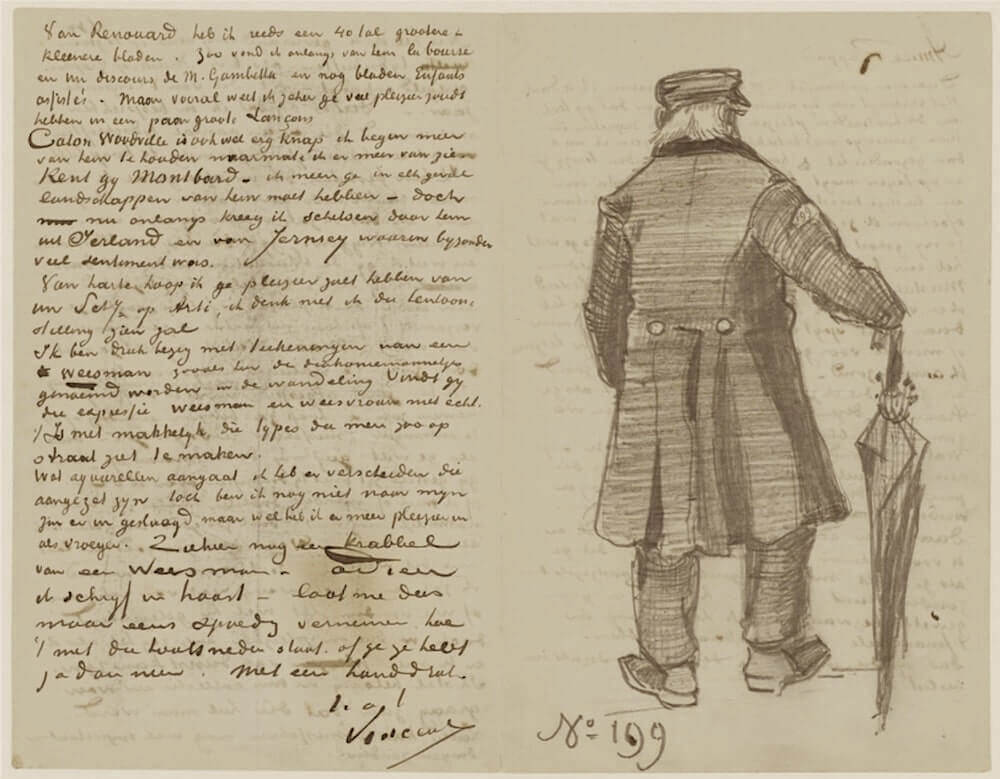 Van Renouard heb ik reeds een 40 tal grootere &
kleenere bladen. Zoo vond ik onlangs van hem la bourse
en un discours de M. Gambetta en nog bladen Enfants
assistés. Maar vooral weet ik zeker ge veel pleizier zoudt
hebben in een paar groote Lançons
Caton Woodville is ook wel erg knap ik begin meer
van hem te houden naarmate ik er meer van zie.
Kent gy Montbard – ik meen ge in elk geval
landschappen van hem moet hebben – doch
nu onlangs kreeg ik schetsen door hem
uit Ierland en van Jersey waarin byzonder
veel sentiment was.
Van harte hoop ik ge pleizier zult hebben van
uw op Arti, ik denk niet ik die tentoon-
stelling zien zal
Ik ben druk bezig met teekeningen van een
weesman zooals hier de diakoniemannetjes
genoemd worden in de wandeling Vindt gy
die expressie weesman en weesvrouw niet echt.
't Is niet makkelyk die types die men zoo op
straat ziet te maken.
Wat aquarellen aangaat ik heb er verscheiden die
aangezet zyn toch ben ik nog niet naar myn
zin er in geslaagd, maar wel heb ik er meer pleizier in
als vroeger. Ziehier nog een krabbel
van een Weesman – adieu
ik schryf in haast – laat me dus
maar eens spoedig vernemen hoe
't met die houtsneden staat. of ge ze hebt
ja dan neen. Met een handdruk.
t. à t
Vincent
No 199
199